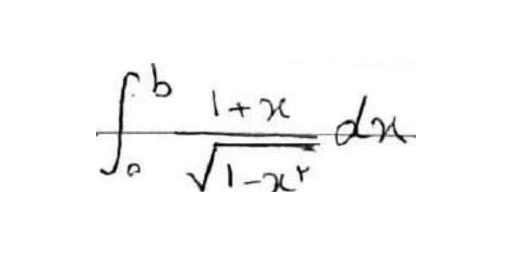 ∫₀ᵇ (1+x)/√(1-x²) dx